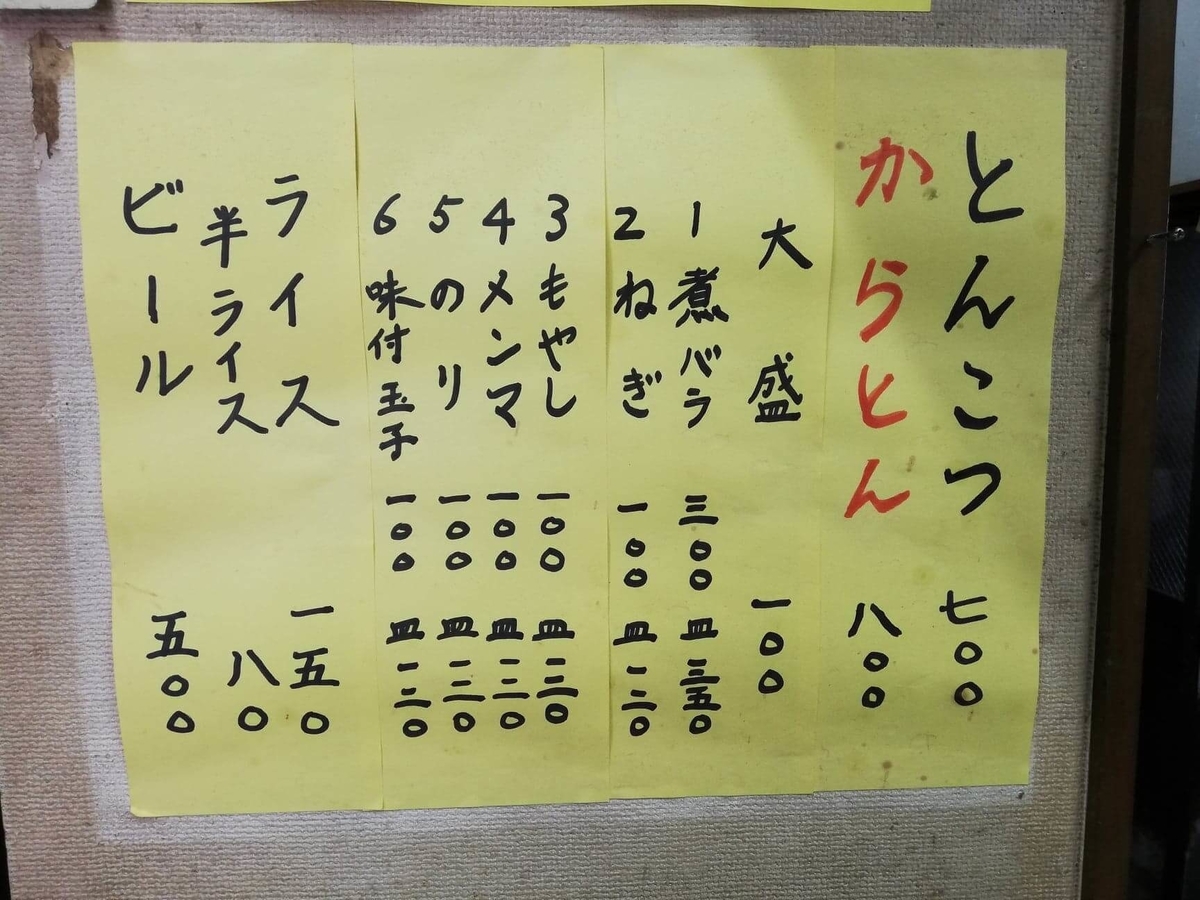 とんこつ 七〇〇
からとん 八〇〇
大盛 一〇〇
1煮バラ 三〇〇 皿三五〇
2ねぎ 一〇〇 皿一二〇
3もやし 一〇〇 皿一二〇
4メンマ 一〇〇 皿一二〇
5のり 一〇〇 皿一二〇
6味付玉子 一〇〇 皿一二〇
ライス 一五〇
半ライス 八〇
ビール 五〇〇